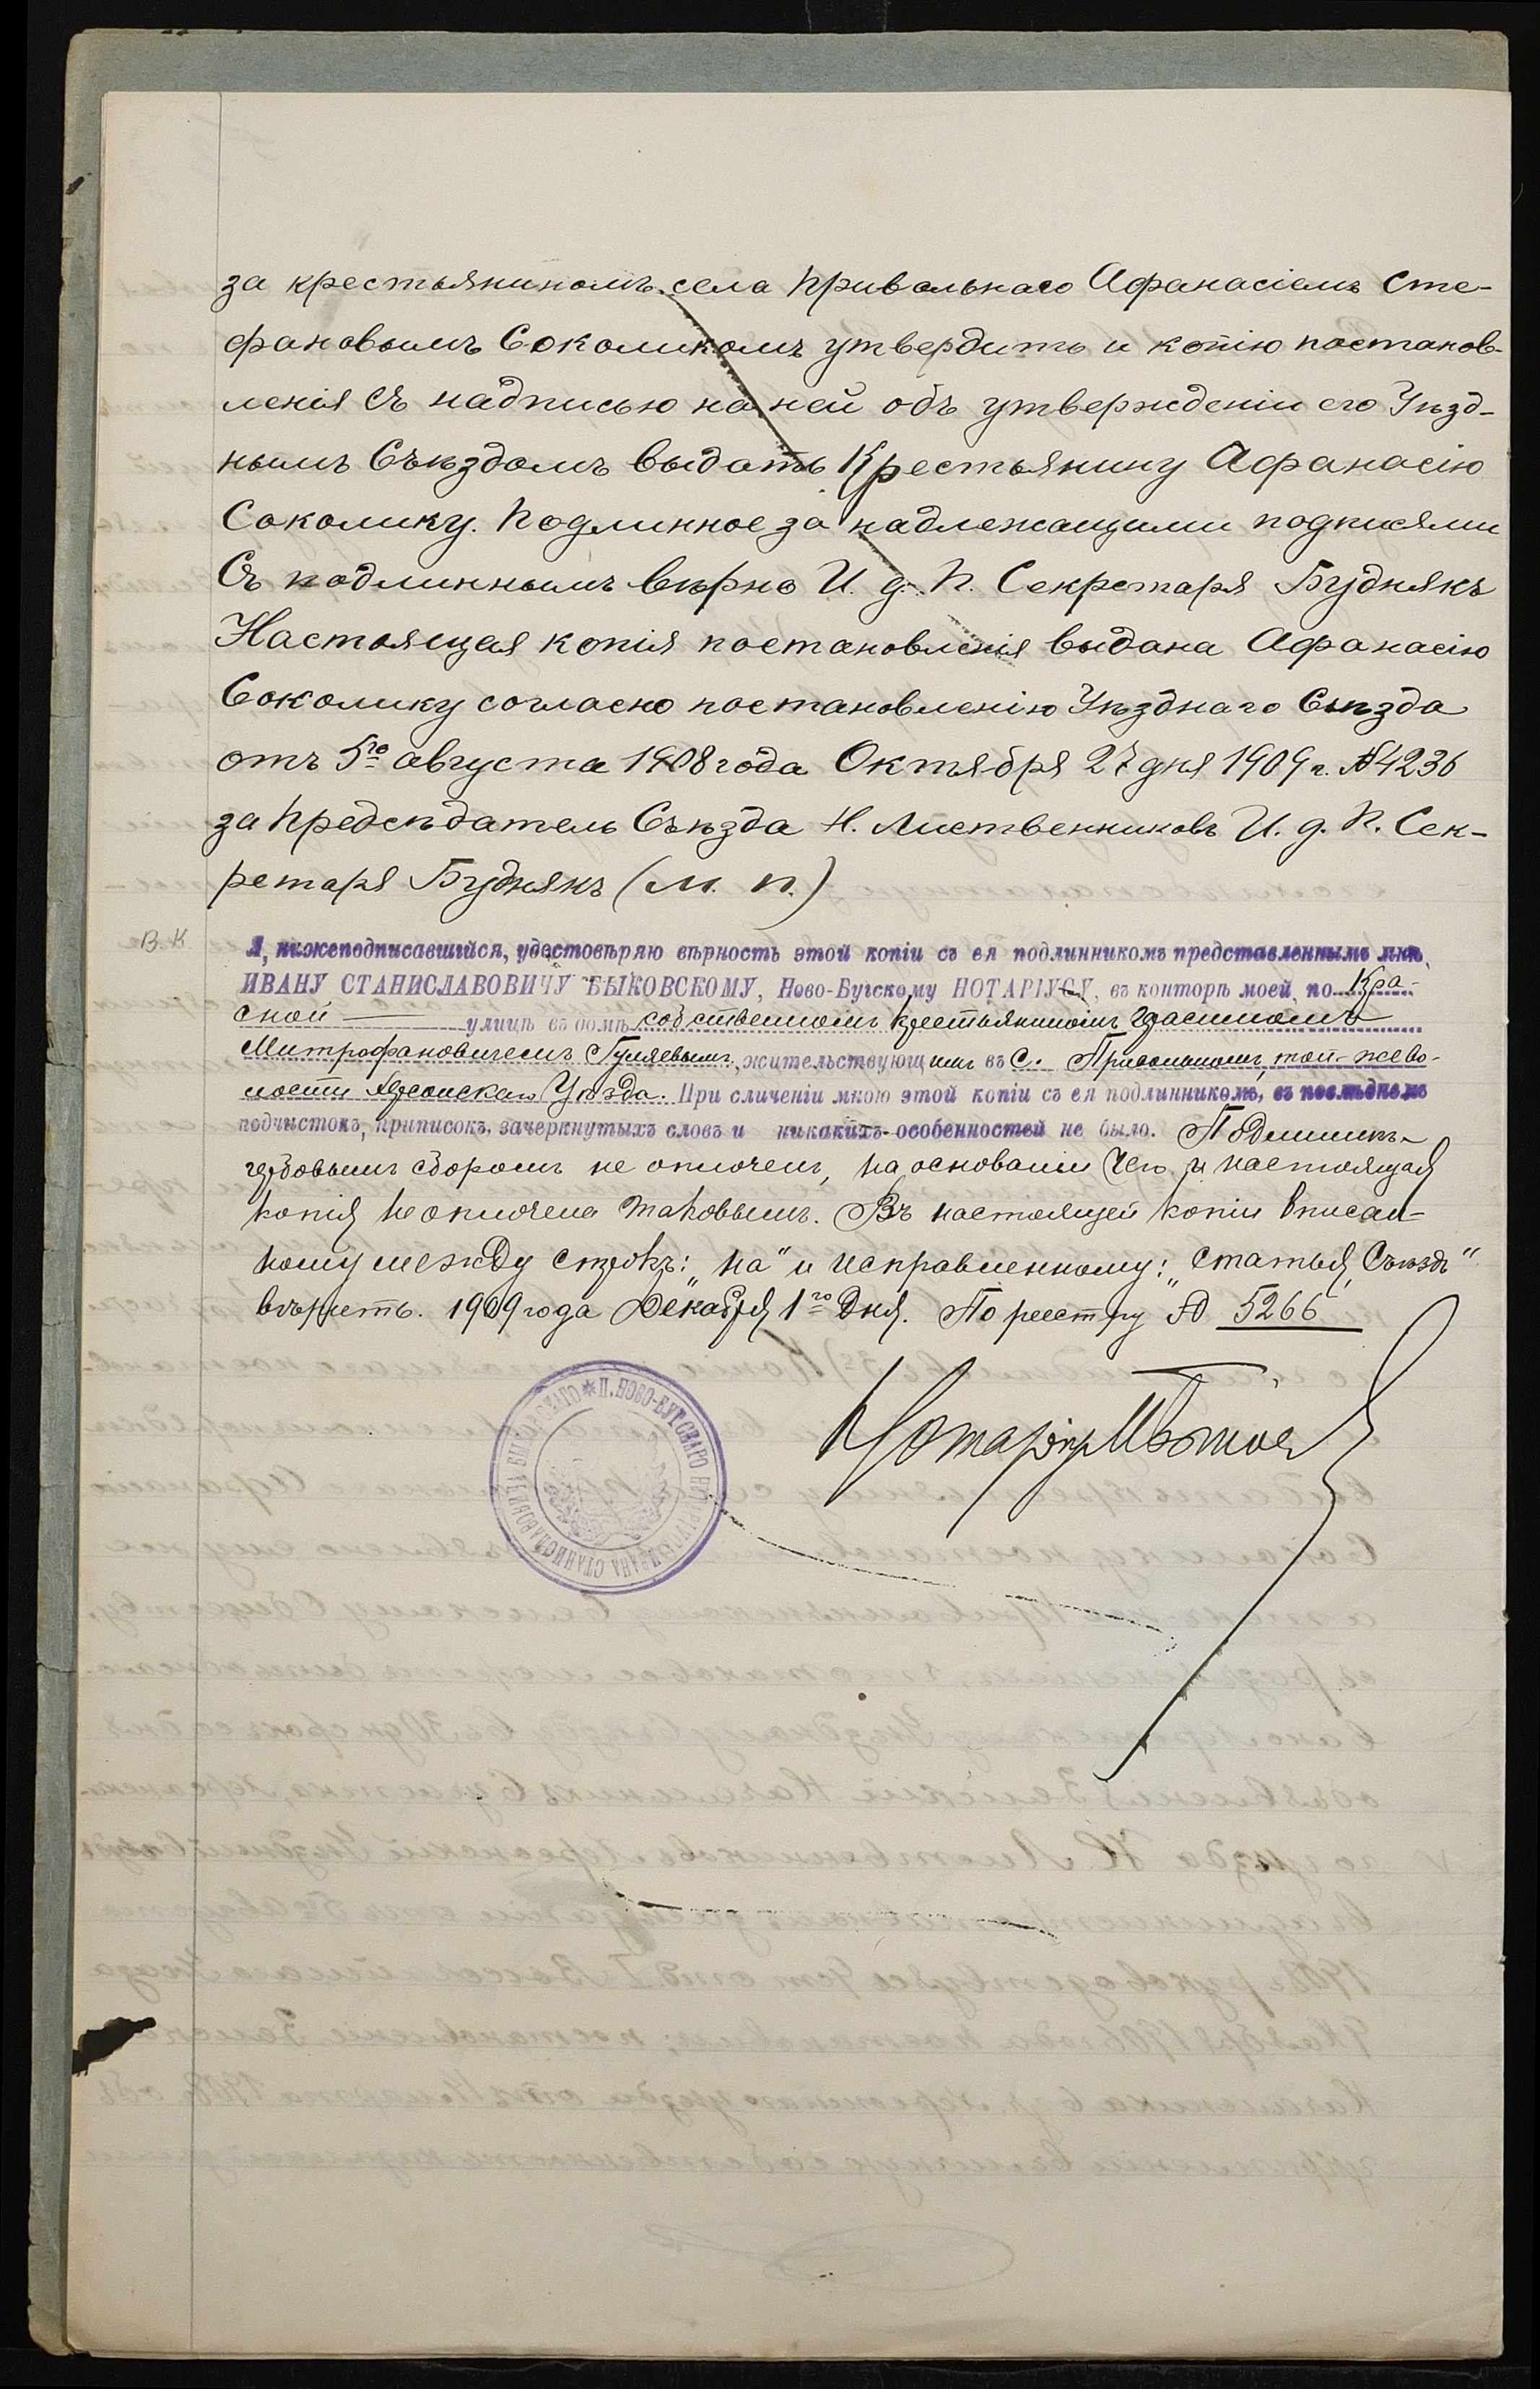 за крестьяниномъ села Привольнаго Афанасіемъ Сте-
фановымъ Соколикомъ утвердить и копію постанов-
ленія съ надписью на ней объ утвержденіи его Уѣзд-
нымъ Съѣздомъ выдать Крестьянину Афанасію
Соколику. Подлинное за надлежащими подписями
Съ подлиннымъ вѣрно И. д. П. Секретаря Буднякъ
Настоящая копія постановленія выдана Афанасію
Соколику согласно постановленію Уѣзднаго Съѣзда
отъ 5го августа 1908 года Октября 27 дня 1909 г. № 4236
за Предсѣдатель Съѣзда Н. Лиственниковъ И. д. П. Сек-
ретаря Буднякъ (М. П.)
В. К
Я, нижеподписавшійся, удостовѣряю вѣрность этой копіи съ ея подлинникомъ представленнымъ мнѣ,
ИВАНУ СТАНИСЛАВОВИЧУ БЫКОВСКОМУ, Ново-Бугскому НОТАРІУСУ, въ конторѣ моей, по Кра-
сной улицѣ въ домѣ собственномъ крестьяниномъ Герасимомъ
Митрофановичемъ Гуляевымъ, жительствующимъ въ С. Привольномъ, той-же во-
лости Херсонскаго Уѣзда. При сличеніи мною этой копіи съ ея подлинникомъ, въ послѣднемъ
подчистокъ, приписокъ, зачеркнутыхъ словъ и никакихъ особенностей не было. Подлинникъ
гербовымъ сборомъ не оплоченъ, на основаніи чего и настоящая
копія не оплочена таковымъ. Въ настоящей копіи вписан-
ному между строкъ: „на" и исправленному: „статья, Съѣздъ"
вѣрить. 1909 года Декабря 1го дня. По реестру № 5266
Нотаріусъ
* П. НОВО-БУГСКАГО НОТАРІУСА ИВАНА СТАНИСЛАВОВИЧА БЫКОВСКАГО